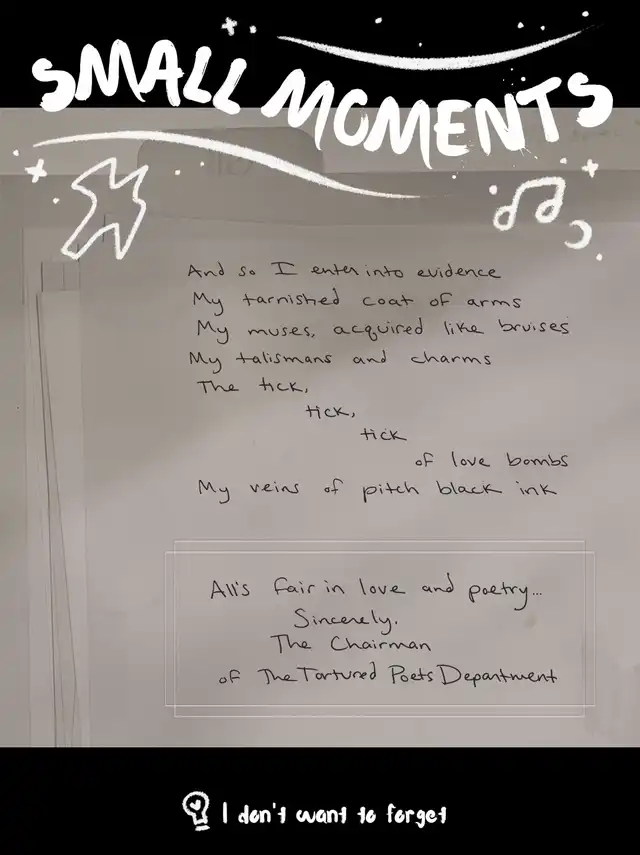 SMALL MOMENTS
And so I enter into evidence
My tarnished coat of arms
My muses, acquired like bruises
My talismans and charms
The tick,
tick,
tick
of love bombs
My veins of pitch black ink
All's fair in love and poetry...
Sincerely.
The Chairman
of The Tortured Poets Department
I don't want to forget